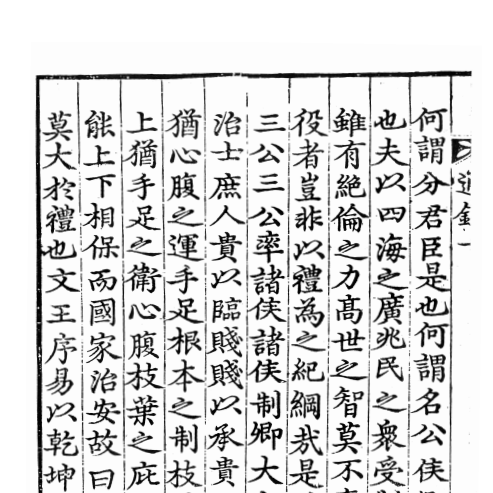 通鑑一
何謂分君臣是也何謂名公侯
也夫以四海之廣兆民之衆受
雖有絶倫之力高世之智莫不
役者豈非以禮為之紀綱㢤是
三公三公率諸侯諸侯制卿大
治士庶人貴以臨賤賤以承貴
猶心腹之運手足根本之制枝
上猶手足之衛心腹枝葉之庇
能上下相保而國家治安故曰
莫大於禮也文王序易以乾坤